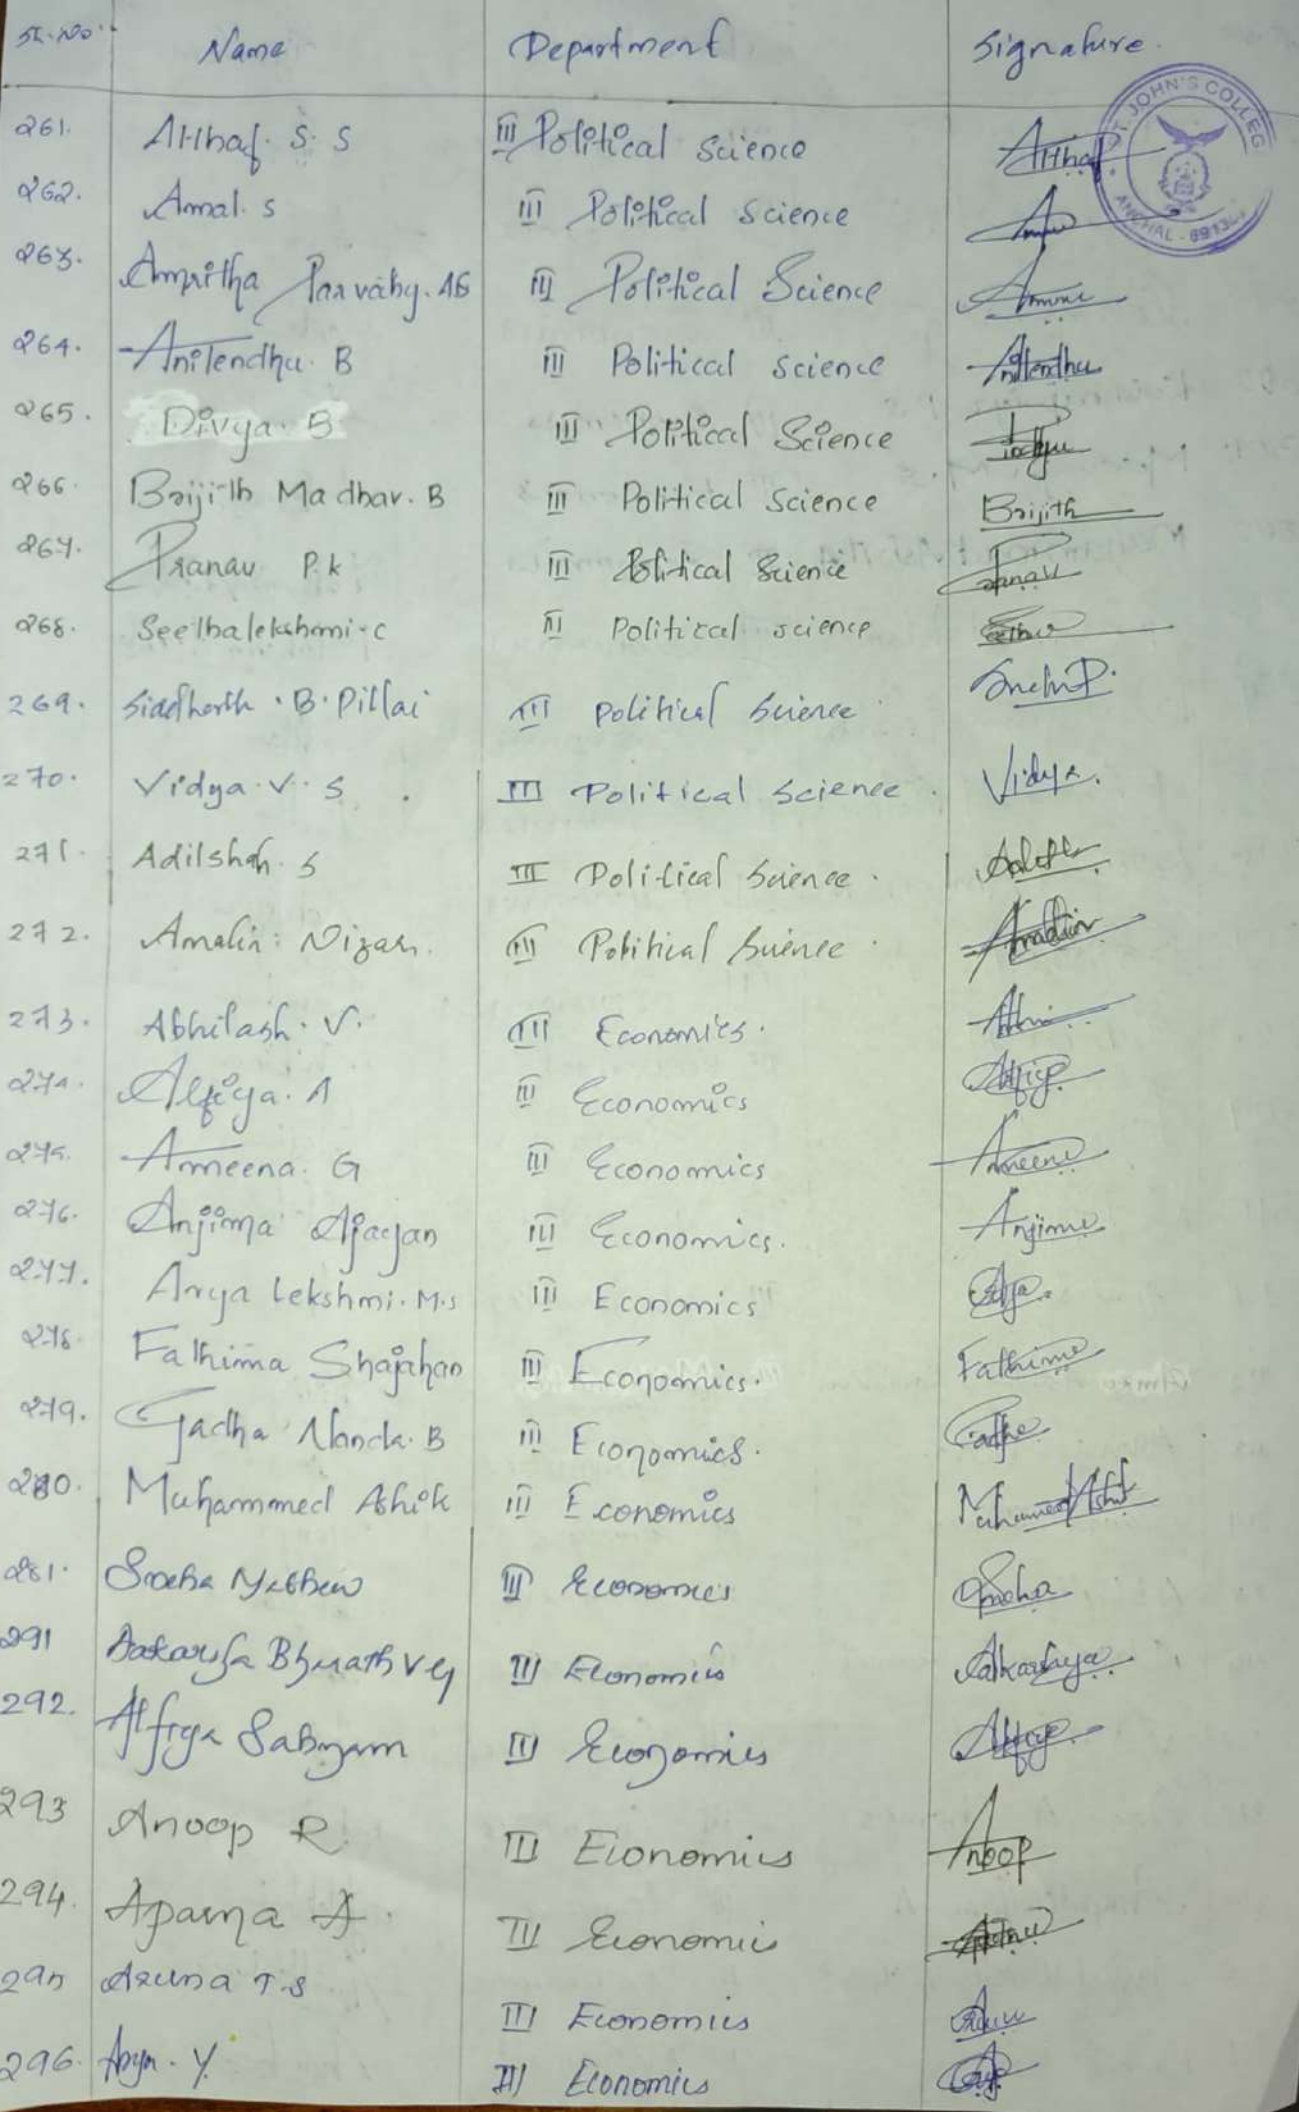 Sl. No. Name Department Signature
ST. JOHN'S COLLEG
ANCHAL - 6913
261. Althaf. S. S III Political Science Althaf
262. Amal. S III Political Science
263. Amritha Parvathy. AS III Political Science
264. Anitendhu. B III Political Science Anitendhu
265. Divya. B III Political Science
266. Brijith Madhav. B III Political Science Brijith
267. Pranav P.K III Political Science Pranav
268. Seethalekshmi. C III Political science
269. Siddharth. B. Pillai III Political Science
270. Vidya. V. S III Political Science Vidya.
271. Adilshah. S III Political Science
272. Amalin: Nizar. III Political Science
273. Abhilash. V. III Economics.
274. Alfiya. A III Economics Alfiya
275. Ameena. G III Economics Ameena
276. Anjima Ajayan III Economics. Anjima
277. Arya Lekshmi. M.S III Economics
278. Fathima Shajahan III Economics. Fathima
279. Gadha Nanda. B III Economics. Gadha
280. Muhammed Ashik III Economics Muhammed Ashik
281. Sneha Mathew III Economics Sneha
291 Bharath V G III Economics
292. Alfiya Sabnam III Economics Alfiya
293 Anoop R III Economics Anoop
294. Aparna A. III Economics
295 Aruna T.S III Economics
296. Arya. Y III Economics